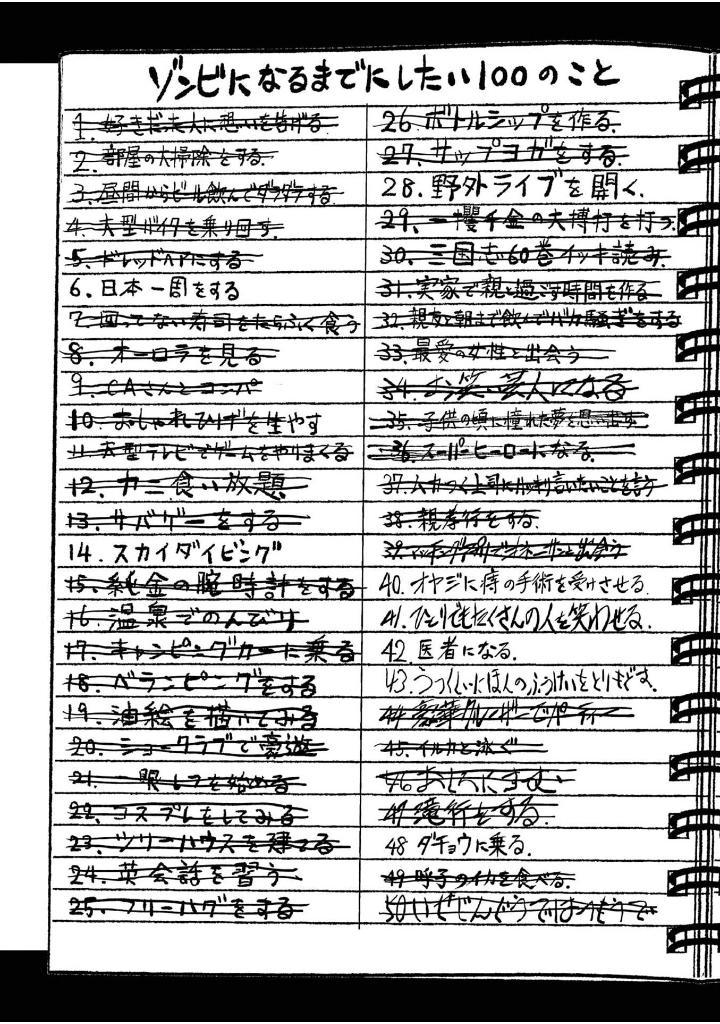 ゾンビになるまでにしたい100のこと
1. 好きだった人に想いを告げる
2. 部屋の大掃除をする.
3. 昼間からビール飲んでダラダラする
4. 大型バイクを乗り回す.
5. ドレッドヘアにする
6. 日本一周をする
7. 回ってない寿司をたらふく食う
8. オーロラを見る
9. CAさんとコンパ
10. おしゃれひげを生やす
11. 大型テレビでゲームをやりまくる
12. カニ食い放題
13. サバゲーをする
14. スカイダイビング
15. 純金の腕時計をする
16. 温泉でのんびり
17. キャンピングカーに乗る
18. ベランピングをする
19. 油絵を描いてみる
20. ショークラブで豪遊
21. 一眼レフを始める
22. コスプレをしてみる
23. ツリーハウスを建てる
24. 英会話を習う
25. フリーハグをする
26. ボトルシップを作る.
27. サップヨガをする.
28. 野外ライブを開く.
29. 一攫千金の大博打を打つ.
30. 三国志60巻イッキ読み.
31. 実家で親と過ごす時間を作る
32. 親友と朝まで飲んでバカ騒ぎをする
33. 最愛の女性と出会う
34. お笑い芸人になる
35. 子供の頃に憧れた夢を思い出す.
36. スーパーヒーローになる.
37. ムカつく上司にハッキリ言いたいことを言う
38. 親孝行をする.
39. マッチングアプリで
40. オヤジに痔の手術を受けさせる.
41. ひとりでもたくさんの人を笑わせる.
42. 医者になる.
43. うつくしいにほんのふうけいをとりもどす.
44. 豪華クルーザーでパーティー
45. イルカと泳ぐ
46 おしろにすむ
47 滝行をする.
48 ダチョウに乗る.
49 呼子のイカを食べる.
50 いぜじんぐうではつもうで